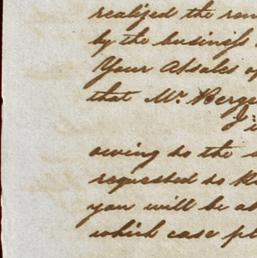 realized the
by the business
Your Absales of
that Mr. Berge
owing to the s
requested to
you will be ab
which case pl